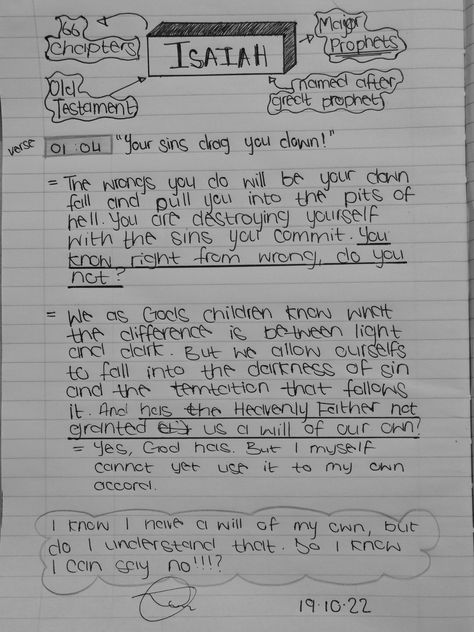 66
chapters
ISAIAH
Major
Prophets
Old
Testament
named after
great prophet
verse 01:04 "Your sins drag you down!"
= The wrongs you do will be your down
fall and pull you into the pits of
hell. You are destroying yourself
with the sins you commit. You
know right from wrong, do you
not?
= We as Gods children know what
the difference is between light
and dark. But we allow ourselfs
to fall into the darkness of sin
and the temtation that follows
it. And has the Heavenly Father not
granted us a will of our own?
= Yes, God has. But I myself
cannot yet use it to my own
accord.
I know I have a will of my own, but
do I understand that. Do I know
I can say no!!!?
19.10.22